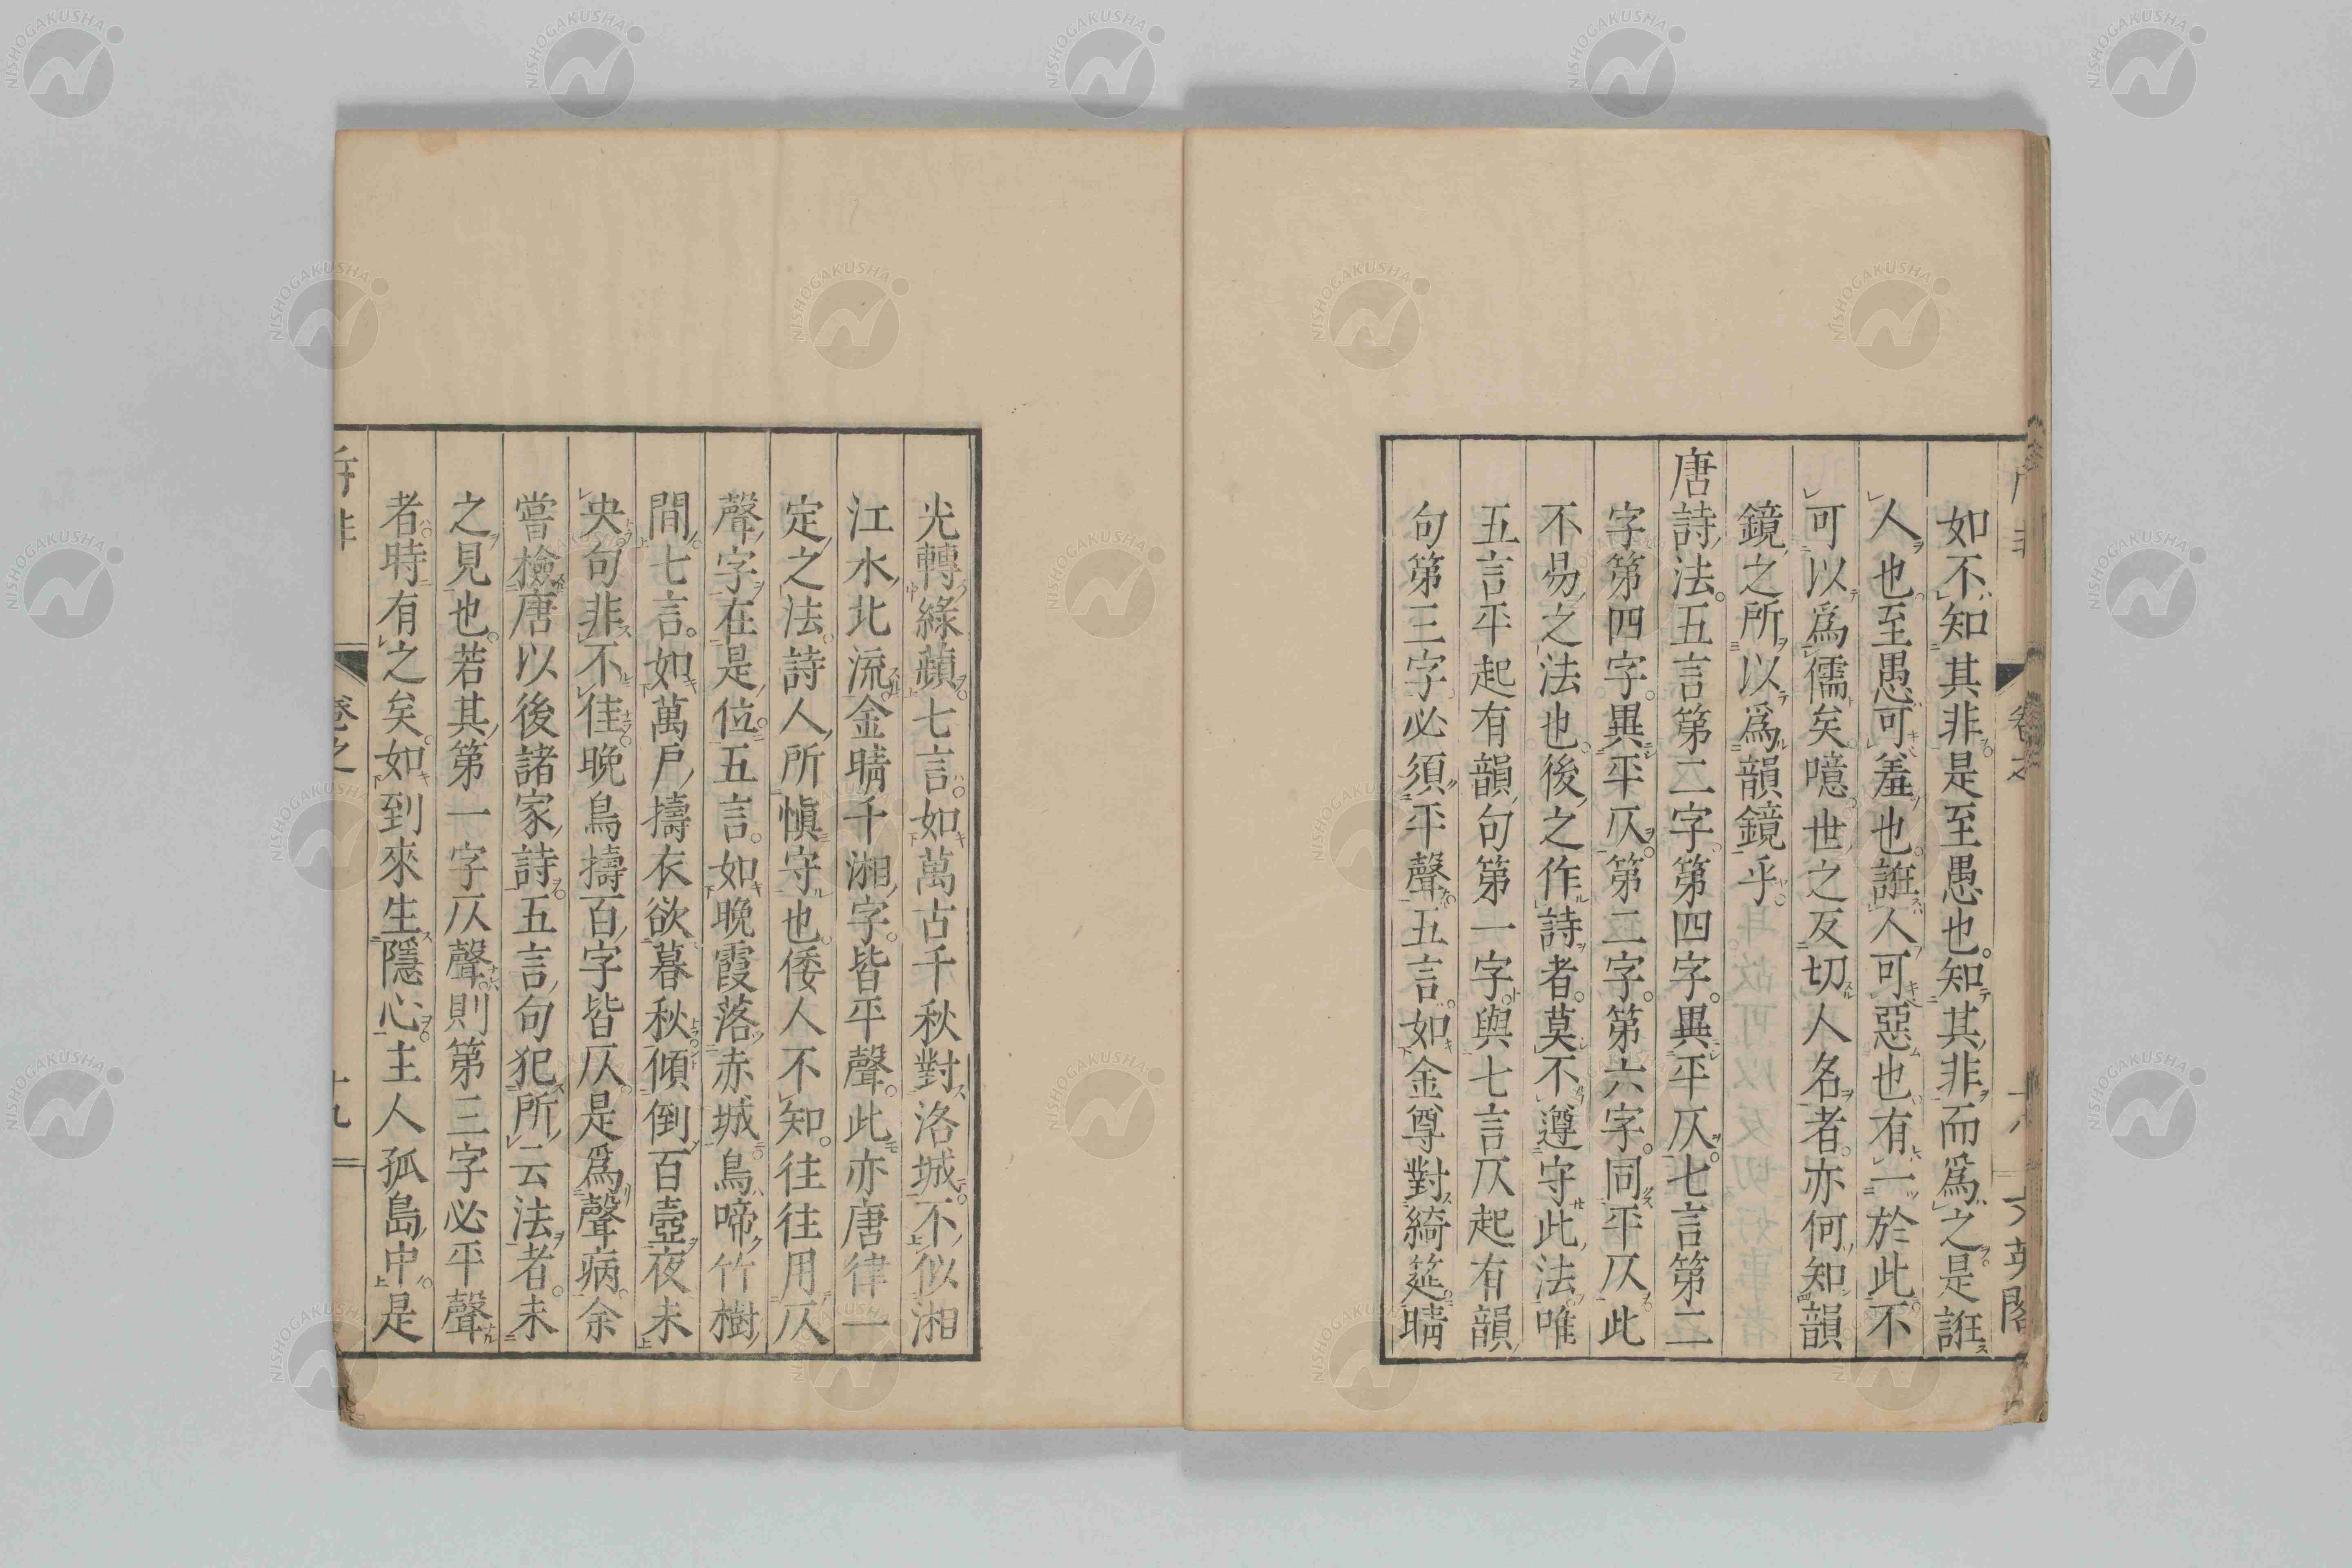 如不知其非是至愚也。知其非而爲之。是誑
人也至愚可羞也。誑人可惡也有一於此不
可以爲儒矣。噫世之反切人名者。亦何知韻
鏡之所以爲韻鏡乎。
唐詩法。五言第二字第四字。異平仄。七言第二
字第四字。異平仄。第二字。第六字。同平仄。此
不易之法也。後之作詩者。莫不遵守此法。唯
五言平起有韻句第一字。與七言仄起有韻
句第三字必須平聲。五言。如金尊對綺筵。晴
光轉綠蘋。七言。如萬古千秋對洛城。不似湘
江水北流。金晴千湘字。皆平聲。此亦唐律一
定之法。詩人所愼守也。倭人不知。往往用仄
聲字在是位。五言。如晩霞落赤城鳥啼竹樹
間。七言。如萬戶擣衣欲暮秋。傾倒百壺夜未
央。句非不佳。晩鳥擣百字皆仄。是爲聲病。余
嘗檢唐以後諸家詩。五言句犯所云法者。未
之見也。若其第一字仄聲。則第三字必平聲
者。時有之矣。如到來生隱心。主人孤島中。是
卷之